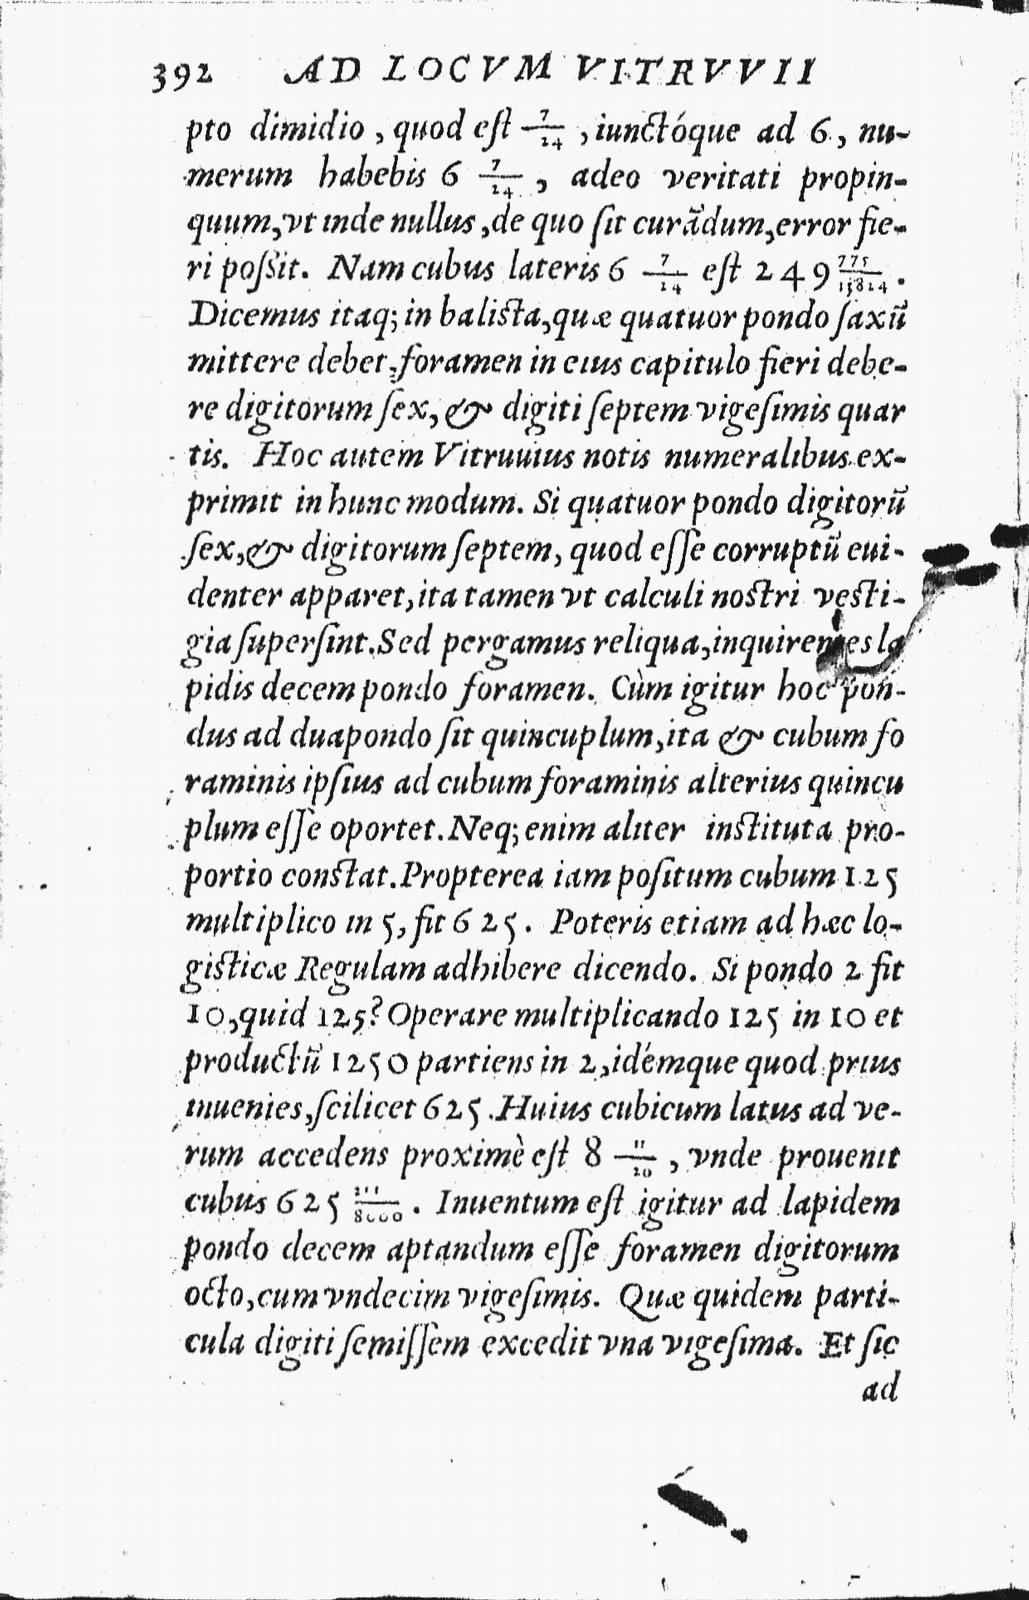 392 AD LOCVM VITRVVII
pto dimidio, quod eſt 7/24, iunctóque ad 6, nu-
merum habebis 6 7/24, adeo veritati propin-
quum, vt inde nullus, de quo ſit curādum, error fie-
ri poſsit. Nam cubus lateris 6 7/24 eſt 249 775/13824.
Dicemus itaq; in balista, quæ quatuor pondo ſaxū
mittere debet, foramen in eius capitulo fieri debe-
re digitorum ſex, & digiti ſeptem vigeſimis quar
tis. Hoc autem Vitruuius notis numeralibus ex-
primit in hunc modum. Si quatuor pondo digitorū
ſex, & digitorum ſeptem, quod eſſe corruptū eui-
denter apparet, ita tamen vt calculi nostri vesti-
gia ſuperſint. Sed pergamus reliqua, inquirentes la
pidis decem pondo foramen. Cùm igitur hoc pon-
dus ad duapondo ſit quincuplum, ita & cubum fo
raminis ipſius ad cubum foraminis alterius quincu
plum eſſe oportet. Neq; enim aliter instituta pro-
portio constat. Propterea iam poſitum cubum 125
multiplico in 5, fit 625. Poteris etiam ad hæc lo-
gisticæ Regulam adhibere dicendo. Si pondo 2 fit
10, quid 125? Operare multiplicando 125 in 10 et
productū 1250 partiens in 2, idémque quod prius
inuenies, ſcilicet 625. Huius cubicum latus ad ve-
rum accedens proximè eſt 8 11/20, vnde prouenit
cubus 625 211/8000. Inuentum eſt igitur ad lapidem
pondo decem aptandum eſſe foramen digitorum
octo, cum vndecim vigeſimis. Quæ quidem parti-
cula digiti ſemiſſem excedit vna vigeſima. Et ſic
ad